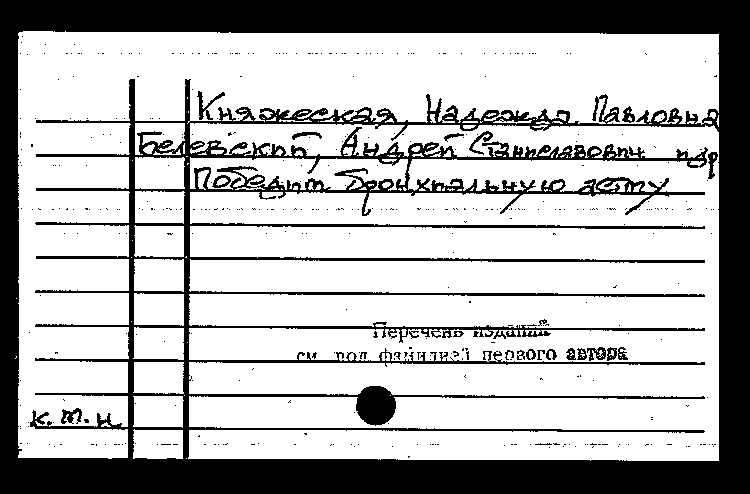 Княжеская, Надежда Павловна
Белевский, Андрей Станиславович и др
Победить бронхиальную астму
Перечень изданий
см. под фамилией первого автора
к. т. н.